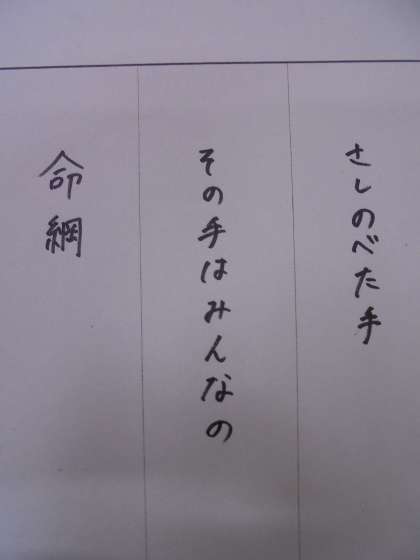 さしのべた手
その手はみんなの
命綱